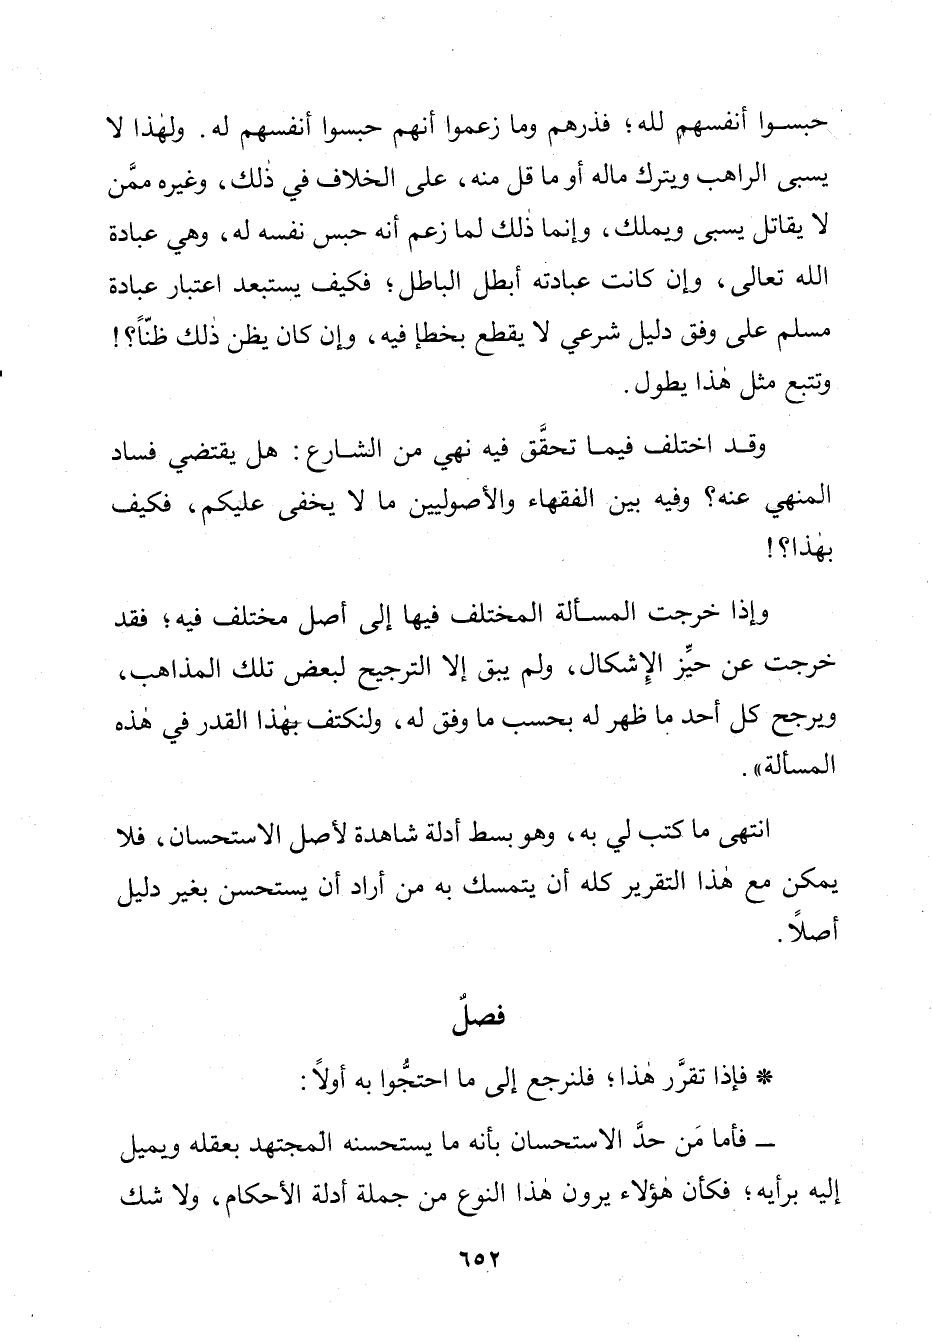 حبسوا أنفسهم لله؛ فذرهم وما زعموا أنهم حبسوا أنفسهم له. ولهٰذا لا
يسبى الراهب ويترك ماله أو ما قل منه، على الخلاف في ذٰلك، وغيره ممَّن
لا يقاتل يسبى ويملك، وإنما ذٰلك لما زعم أنه حبس نفسه له، وهي عبادة
الله تعالى، وإن كانت عبادته أبطل الباطل؛ فكيف يستبعد اعتبار عبادة
مسلم على وفق دليل شرعي لا يقطع بخطإ فيه، وإن كان يظن ذٰلك ظنّاً؟!
وتتبع مثل هٰذا يطول.
وقد اختلف فيما تحقَّق فيه نهي من الشارع: هل يقتضي فساد
المنهي عنه؟ وفيه بين الفقهاء والأصوليين ما لا يخفى عليكم، فكيف
بهٰذا؟!
وإذا خرجت المسألة المختلف فيها إلى أصل مختلف فيه؛ فقد
خرجت عن حيِّز الإِشكال، ولم يبق إلا الترجيح لبعض تلك المذاهب،
ويرجح كل أحد ما ظهر له بحسب ما وفق له، ولنكتف بهٰذا القدر في هٰذه
المسألة».
انتهى ما كتب لي به، وهو بسط أدلة شاهدة لأصل الاستحسان، فلا
يمكن مع هٰذا التقرير كله أن يتمسك به من أراد أن يستحسن بغير دليل
أصلاً.
فصلٌ
* فإذا تقرَّر هٰذا؛ فلنرجع إلى ما احتجُّوا به أولاً:
ـ فأما مَن حدَّ الاستحسان بأنه ما يستحسنه المجتهد بعقله ويميل
إليه برأيه؛ فكأن هٰؤلاء يرون هٰذا النوع من جملة أدلة الأحكام، ولا شك
٦٥٢